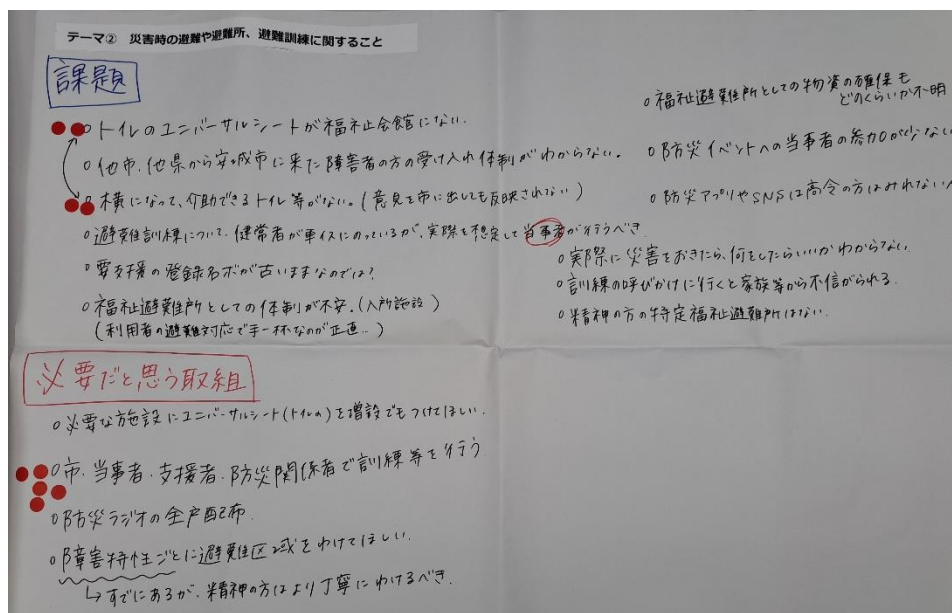 テーマ② 災害時の避難や避難所、避難訓練に関すること
課題
○トイレのユニバーサルシートが福祉会館にない。
○他市、他県から安城市に来た障害者の方の受け入れ体制がわからない。
○横になって、介助できるトイレ等がない。(意見を市に出しても反映されない)
○避難訓練について、健常者が車イスにのっているが、実際を想定して当事者が行うべき
○要支援の登録名ボが古いままなのでは?
○福祉避難所としての体制が不安。(入所施設)
(利用者の避難対応で手一杯なのが正直…)
○福祉避難所としての物資の確保も
どのくらいか不明
○防災イベントへの当事者の参加が少ない
○防災アプリやSNSは高令の方はみれない人
○実際に災害をおきたら、何をしたらいいかわからない。
○訓練の呼びかけに行くと家族等から不信がられる。
○精神の方の特定福祉避難所はない。
必要だと思う取組
○必要な施設にユニバーサルシート(トイレの)を増設でもつけてほしい。
○市、当事者、支援者、防災関係者で訓練等を行う
○防災ラジオの全戸配布
○障害特性ごとに避難区域をわけてほしい。
↳すでにあるが、精神の方はより丁寧にわけるべき。